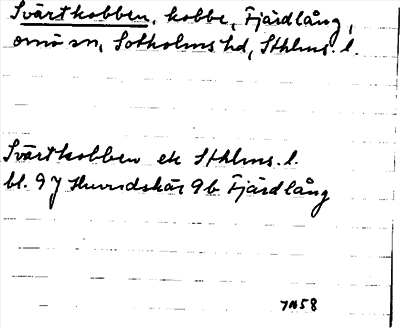 Svärtkobben, kobbe, Fjärdlång,
ornö sn, Sotholms hd, Sthlms. l.
Svärtkobben ek Sthlms. l.
bl. 9 J Huvudskär 9b Fjärdlång
58